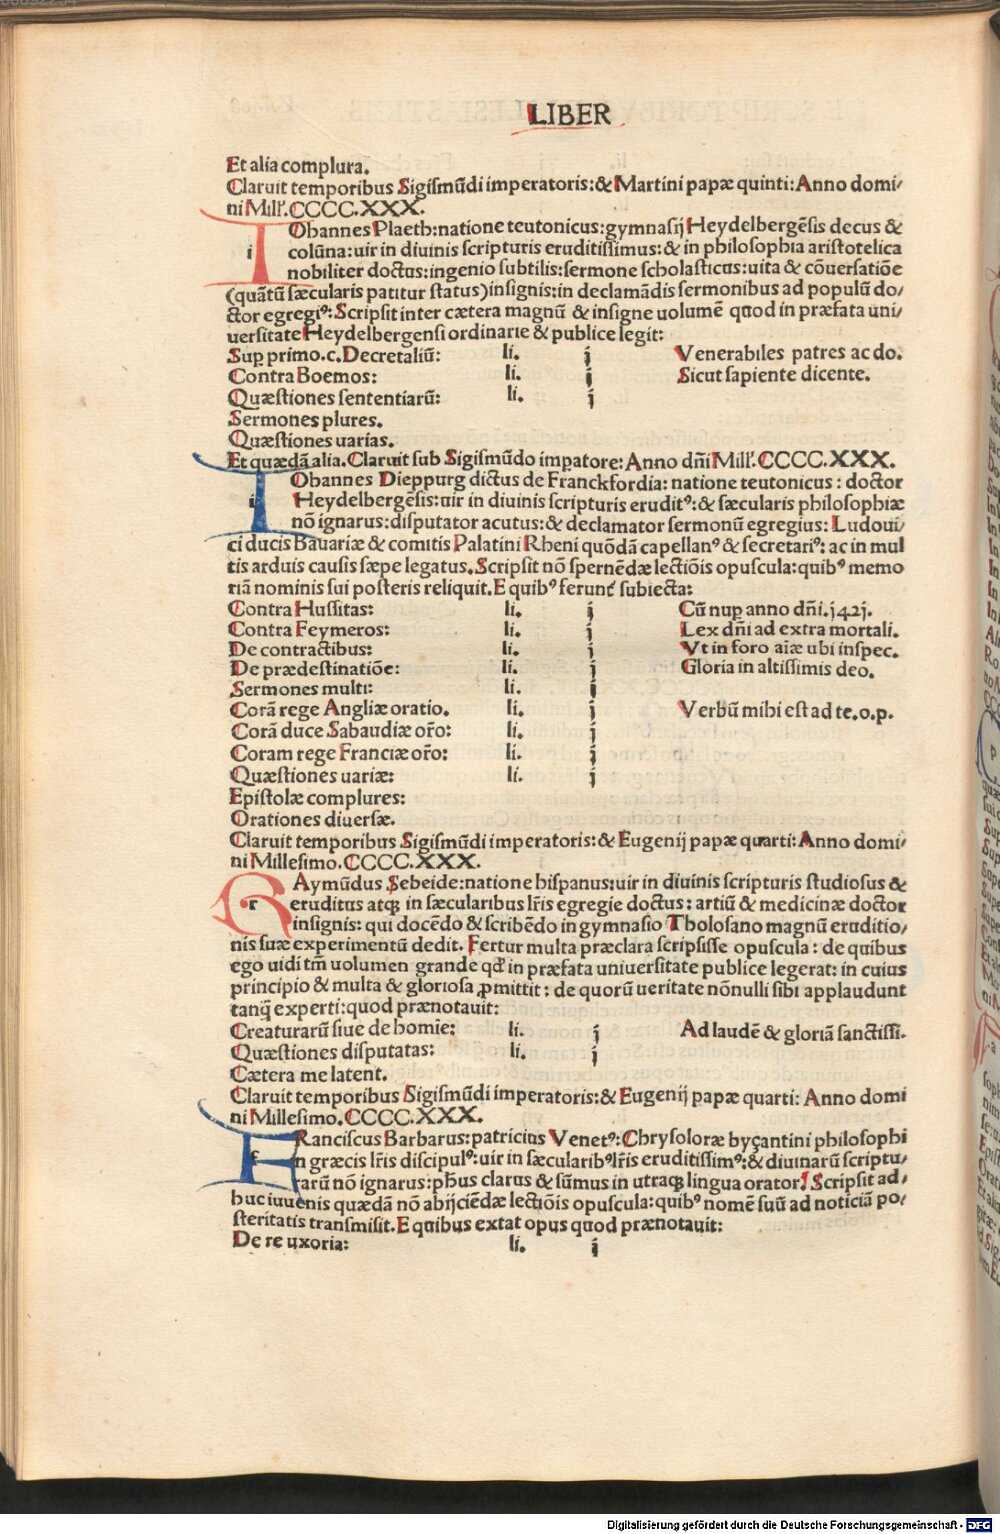 LIBER
Et alia complura.
Claruit temporibus Sigiſmūdi imperatoris:& Martini papæ quinti:Anno domi/
ni Mill'.CCCC.XXX.
IOhannes Plaeth:natione teutonicus:gymnasij Heydelbergēſis decus &
colūna:uir in diuinis ſcripturis eruditiſſimus:& in philoſophia ariſtotelica
nobiliter doctus:ingenio ſubtilis:ſermone ſcholaſticus:uita & cōuerſatiōe
(quātū ſæcularis patitur ſtatus)inſignis:in declamādis ſermonibus ad populū do/
ctor egregiꝰ:Scripſit inter cætera magnū & inſigne uolumē quod in præfata uni/
uerſitate Heydelbergenſi ordinarie & publice legit:
Suꝑ primo.c.Decretaliū: li. j Venerabiles patres ac do.
Contra Boemos: li. j Sicut ſapiente dicente.
Quæſtiones ſententiarū: li. j
Sermones plures.
Quæſtiones uarias.
Et quædā alia.Claruit ſub Sigiſmūdo imꝑatore:Anno dn̄i Mill'.CCCC.XXX.
IOhannes Dieppurg dictus de Franckfordia:natione teutonicus:doctor
Heydelbergēſis:uir in diuinis ſcripturis eruditꝰ:& ſæcularis philoſophiæ
nō ignarus:diſputator acutus:& declamator ſermonū egregius:Ludoui/
ci ducis Bauariæ & comitis Palatini Rheni quōdā capellanꝰ & ſecretariꝰ:ac in mul
tis arduis cauſis ſæpe legatus.Scripſit nō ſpernēdæ lectiōis opuſcula:quibꝰ memo
riā nominis ſui poſteris reliquit.E quibꝰ ferunt' ſubiecta:
Contra Huſſitas: li. j Cū nuꝑ anno dn̄i.j42j.
Contra Feymeros: li. j Lex dn̄i ad extra mortali.
De contractibus: li. j Vt in foro aīæ ubi inſpec.
De prædeſtinatiōe: li. j Gloria in altiſſimis deo.
Sermones multi: li. j
Corā rege Angliæ oratio. li. j Verbū mihi eſt ad te.o.p.
Corā duce Sabaudiæ or̄o: li. j
Coram rege Franciæ or̄o: li. j
Quæſtiones uariæ: li. j
Epiſtolæ complures:
Orationes diuerſæ.
Claruit temporibus Sigiſmūdi imperatoris:& Eugenij papæ quarti:Anno domi/
ni Milleſimo.CCCC.XXX.
RAymūdus Sebeide:natione hiſpanus:uir in diuinis ſcripturis ſtudioſus &
eruditus atqꝫ in ſæcularibus lr̄is egregie doctus:artiū & medicinæ doctor
inſignis:qui docēdo & ſcribēdo in gymnaſio Tholoſano magnū eruditio/
nis ſuæ experimentū dedit.Fertur multa præclara ſcripſiſſe opuſcula:de quibus
ego uidi tm̄ uolumen grande qd' in præfata uniuerſitate publice legerat:in cuius
principio & multa & glorioſa ꝓmittit:de quorū ueritate nōnulli ſibi applaudunt
tanq̄ experti:quod prænotauit:
Creaturarū ſiue de homie: li. j Ad laudē & gloriā ſanctiſſi.
Quæſtiones diſputatas: li. j
Cætera me latent.
Claruit temporibus Sigiſmūdi imperatoris:& Eugenij papæ quarti:Anno domi
ni Milleſimo.CCCC.XXX.
FRanciſcus Barbarus:patricius Venetꝰ:Chryſoloræ byçantini philoſophi
in græcis lr̄is diſcipulꝰ:uir in ſæcularibꝰ lr̄is eruditiſſimꝰ:& diuinarū ſcriptu/
rarū nō ignarus:ph̄us clarus & ſūmus in utraqꝫ lingua orator:Scripſit ad/
huc iuuenis quædā nō abijciēdæ lectiōis opuſcula:quibꝰ nomē ſuū ad noticiā po/
ſteritatis tranſmiſit.E quibus extat opus quod prænotauit:
De re uxoria: li. j
Digitalisierung gefördert durch die Deutsche Forschungsgemeinschaft - DFG